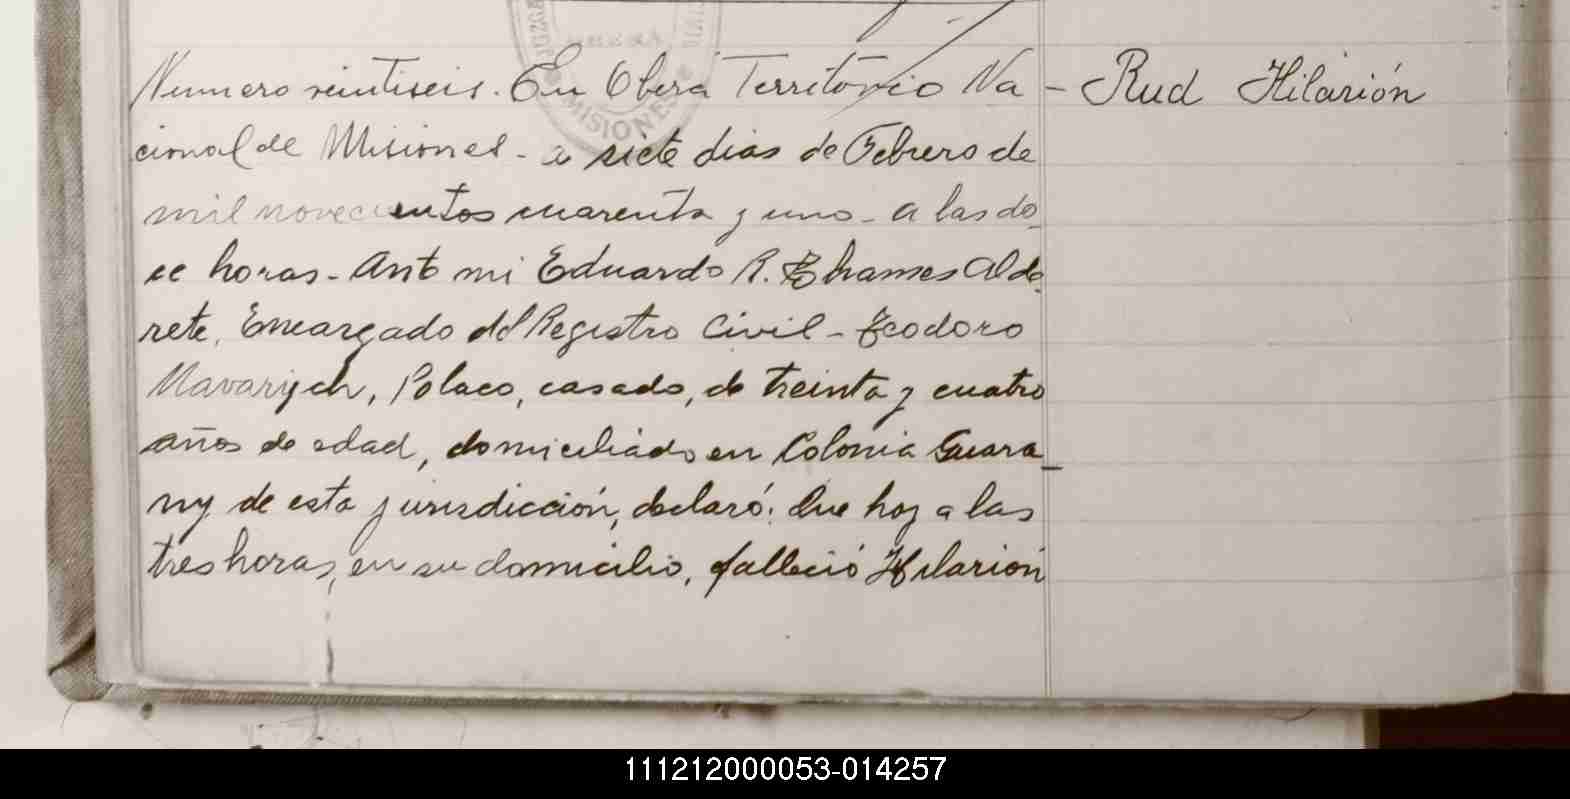 Numero veintiseis. En Oberá Territorio Na- Rud Hilarión
cional de Misiones - a siete dias de Febrero de
mil novecientos cuarenta y uno - a las do_
ce horas - Ante mi Eduardo R. Thames Alde_
rete, Encargado del Registro Civil - Teodoro
Mavarych, Polaco, casado, de treinta y cuatro
años de edad, domiciliado en Colonia Guara_
ny de esta jurisdicción, declaró: Que hoy a las
tres horas, en su domicilio, falleció Hilarión
MISIONES
111212000053-014257